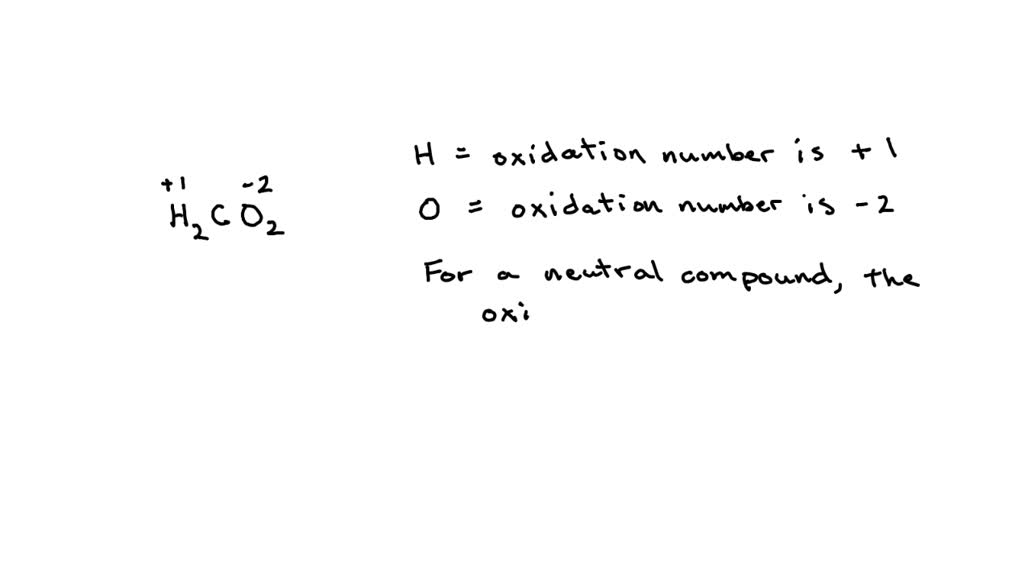 H = oxidation number is +1
+1 -2
H₂CO₂
O = oxidation number is -2
For a neutral compound, the
oxi